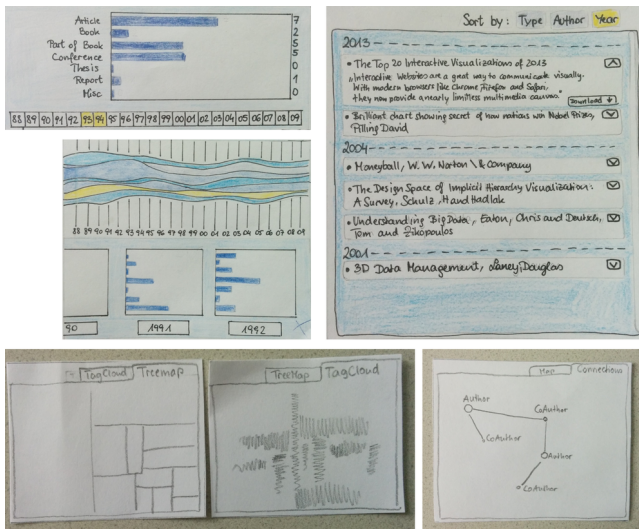 Article 7
Book 2
Part of Book 5
Conference 5
Thesis 0
Report 1
Misc 0
88 89 90 91 92 93 94 95 96 97 98 99 00 01 02 03 04 05 06 07 08 09
88 89 90 91 92 93 94 95 96 97 98 99 00 01 02 03 04 05 06 07 08 09
90 1991 1992
Sort by: Type Author Year
2013
• The Top 20 Interactive Visualizations of 2013
Interactive Websites are a great way to communicate visually.
With modern browsers like Chrome, Firefox and Safari,
they now provide a nearly limitless multimedia canvas.
Download
• Brilliant chart showing secret of how nations win Nobel Prizes,
Pilling David
2004
• Moneyball, W. W. Norton \& Company
• The Design Space of Implicit Hierarchy Visualization:
A Survey, Schulz, H and Hadlak
• Understanding Big Data, Eaton, Chris and Deutsch,
Tom and Zikopoulos
2001
• 3D Data Management, Laney, Douglas
TagCloud Treemap
TreeMap TagCloud
Map Connections
Author
CoAuthor
CoAuthor
Author
CoAuthor